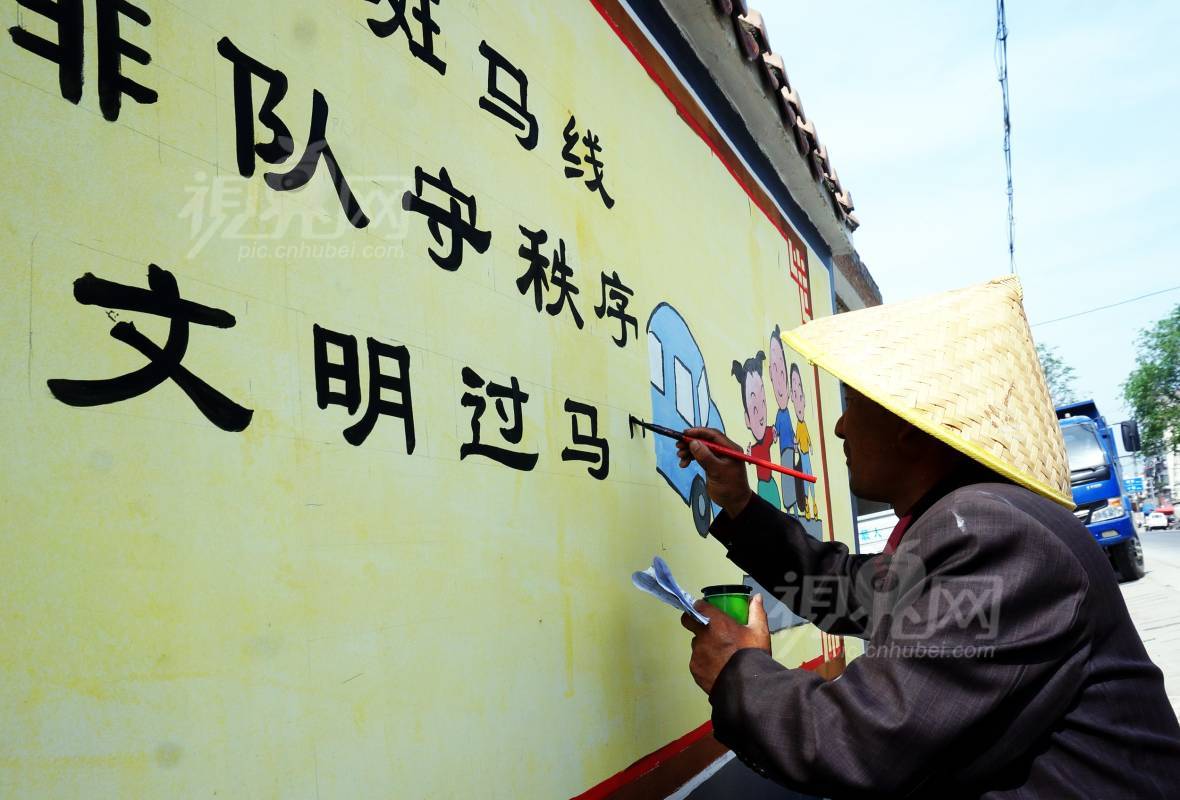 马线
非队守秩序
文明过马
視界网
pic.cnhubei.com
視界网
pic.cnhubei.com